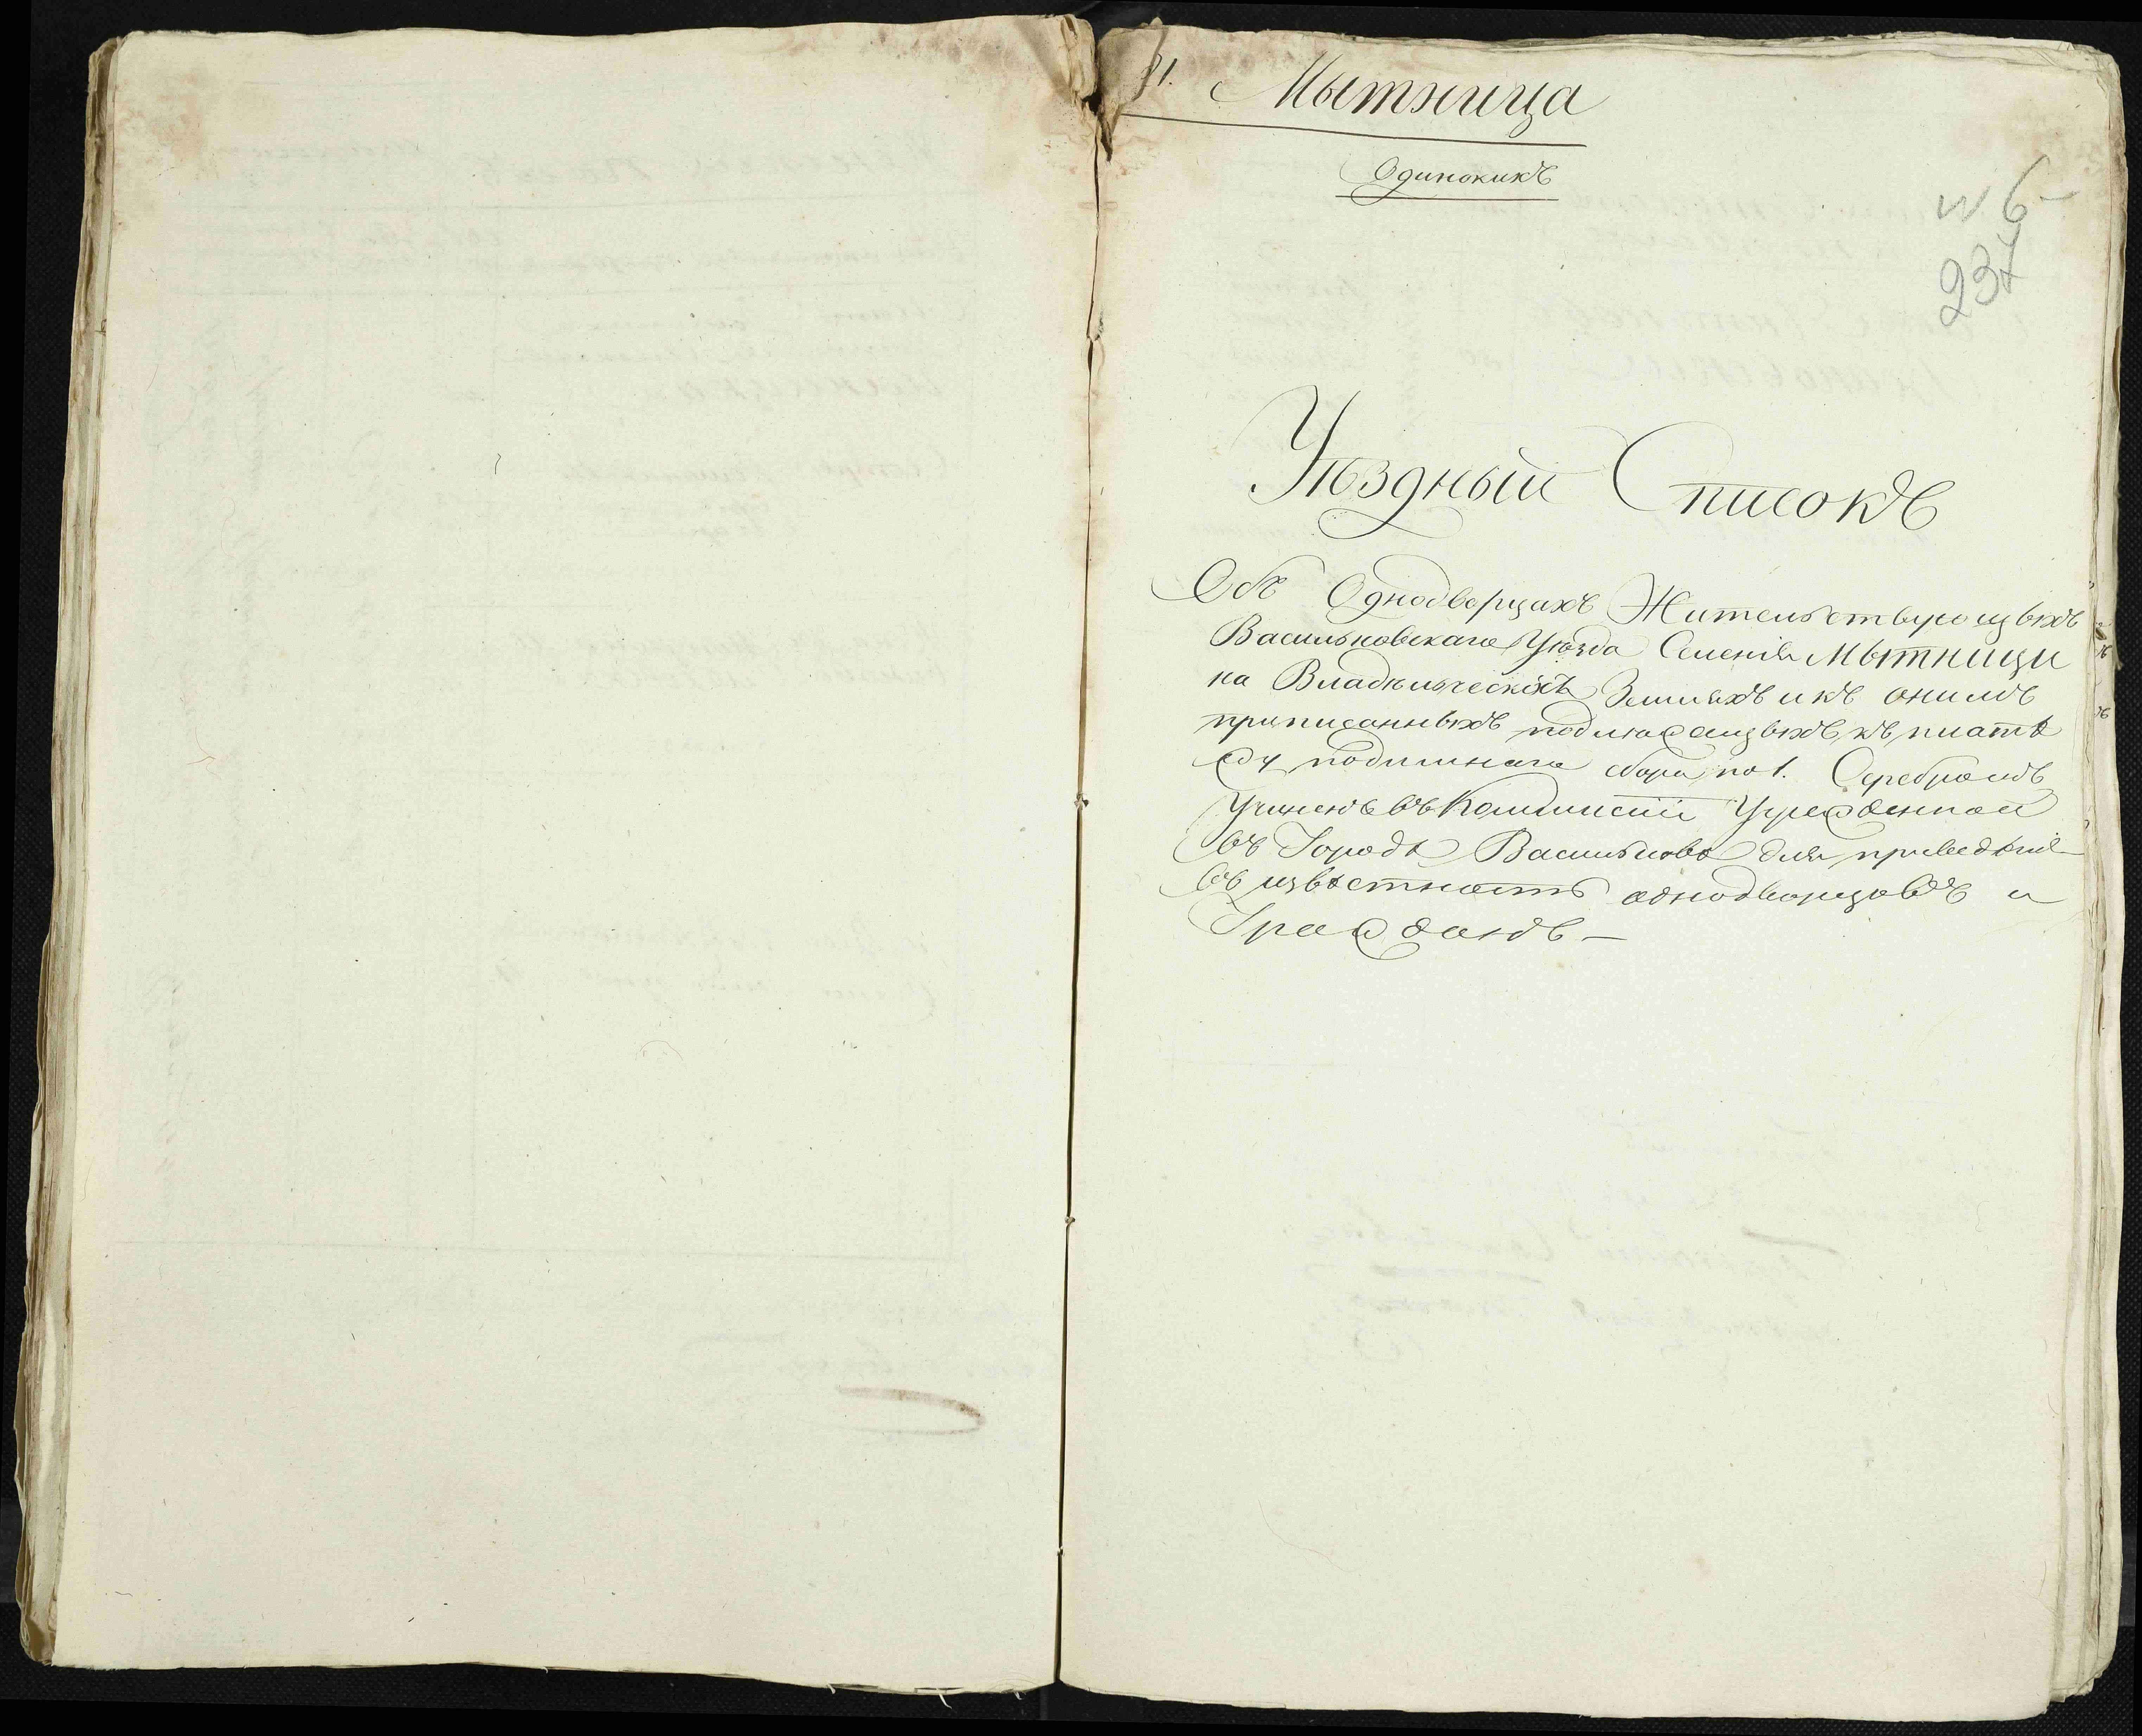 91. Мытница
Одинокихъ
N 6
237
Уѣздный Списокъ
Объ Однодворцахъ Жительствующихъ
Васильковскаго Уѣзда Селенія Мытници
на Владѣльческихъ Земляхъ и къ онимъ
приписанныхъ подлежащихъ къ платѣ
подымнаго сбора по 1. Серебромъ
Учиненъ въ Коммисіи Учрежденной
въ Городѣ Васильковѣ для приведѣнія
въ извѣстность однодворцовъ и
Гражданъ —